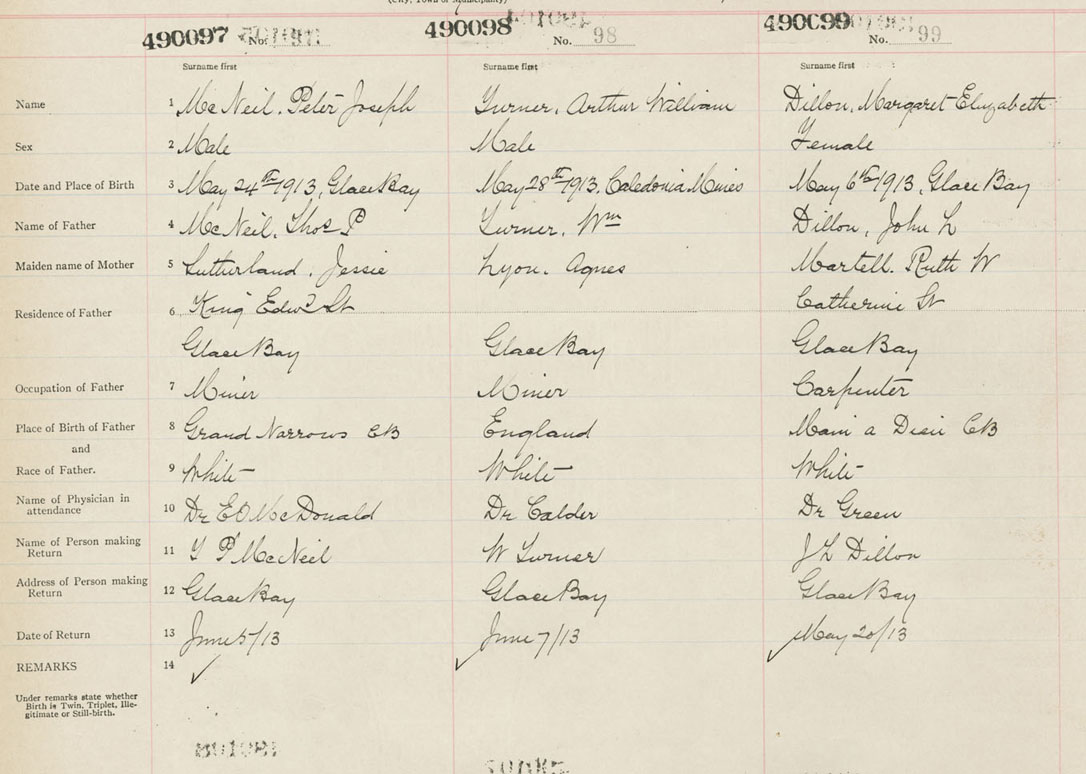 (City, Town or Municipality)
490097 No. 97 490098 No. 98 490099 No. 99
Surname first Surname first Surname first
Name 1 McNeil, Peter Joseph Turner, Arthur William Dillon, Margaret Elizabeth
Sex 2 Male Male Female
Date and Place of Birth 3 May 24th 1913, Glace Bay May 28th 1913, Caledonia Mines May 6th 1913, Glace Bay
Name of Father 4 McNeil, Thos P Turner, Wm Dillon, John L
Maiden name of Mother 5 Sutherland, Jessie Lyon, Agnes Martell, Ruth W
Residence of Father 6 King Edwd St Catherine St
Glace Bay Glace Bay Glace Bay
Occupation of Father 7 Miner Miner Carpenter
Place of Birth of Father 8 Grand Narrows CB England Main a Dieu CB
and
Race of Father. 9 White White White
Name of Physician in attendance 10 Dr E O McDonald Dr Calder Dr Green
Name of Person making Return 11 T P McNeil W Turner J L Dillon
Address of Person making Return 12 Glace Bay Glace Bay Glace Bay
Date of Return 13 June 5/13 June 7/13 May 20/13
REMARKS 14 ✓ ✓ ✓
Under remarks state whether
Birth is Twin, Triplet, Ille-
gitimate or Still-birth.